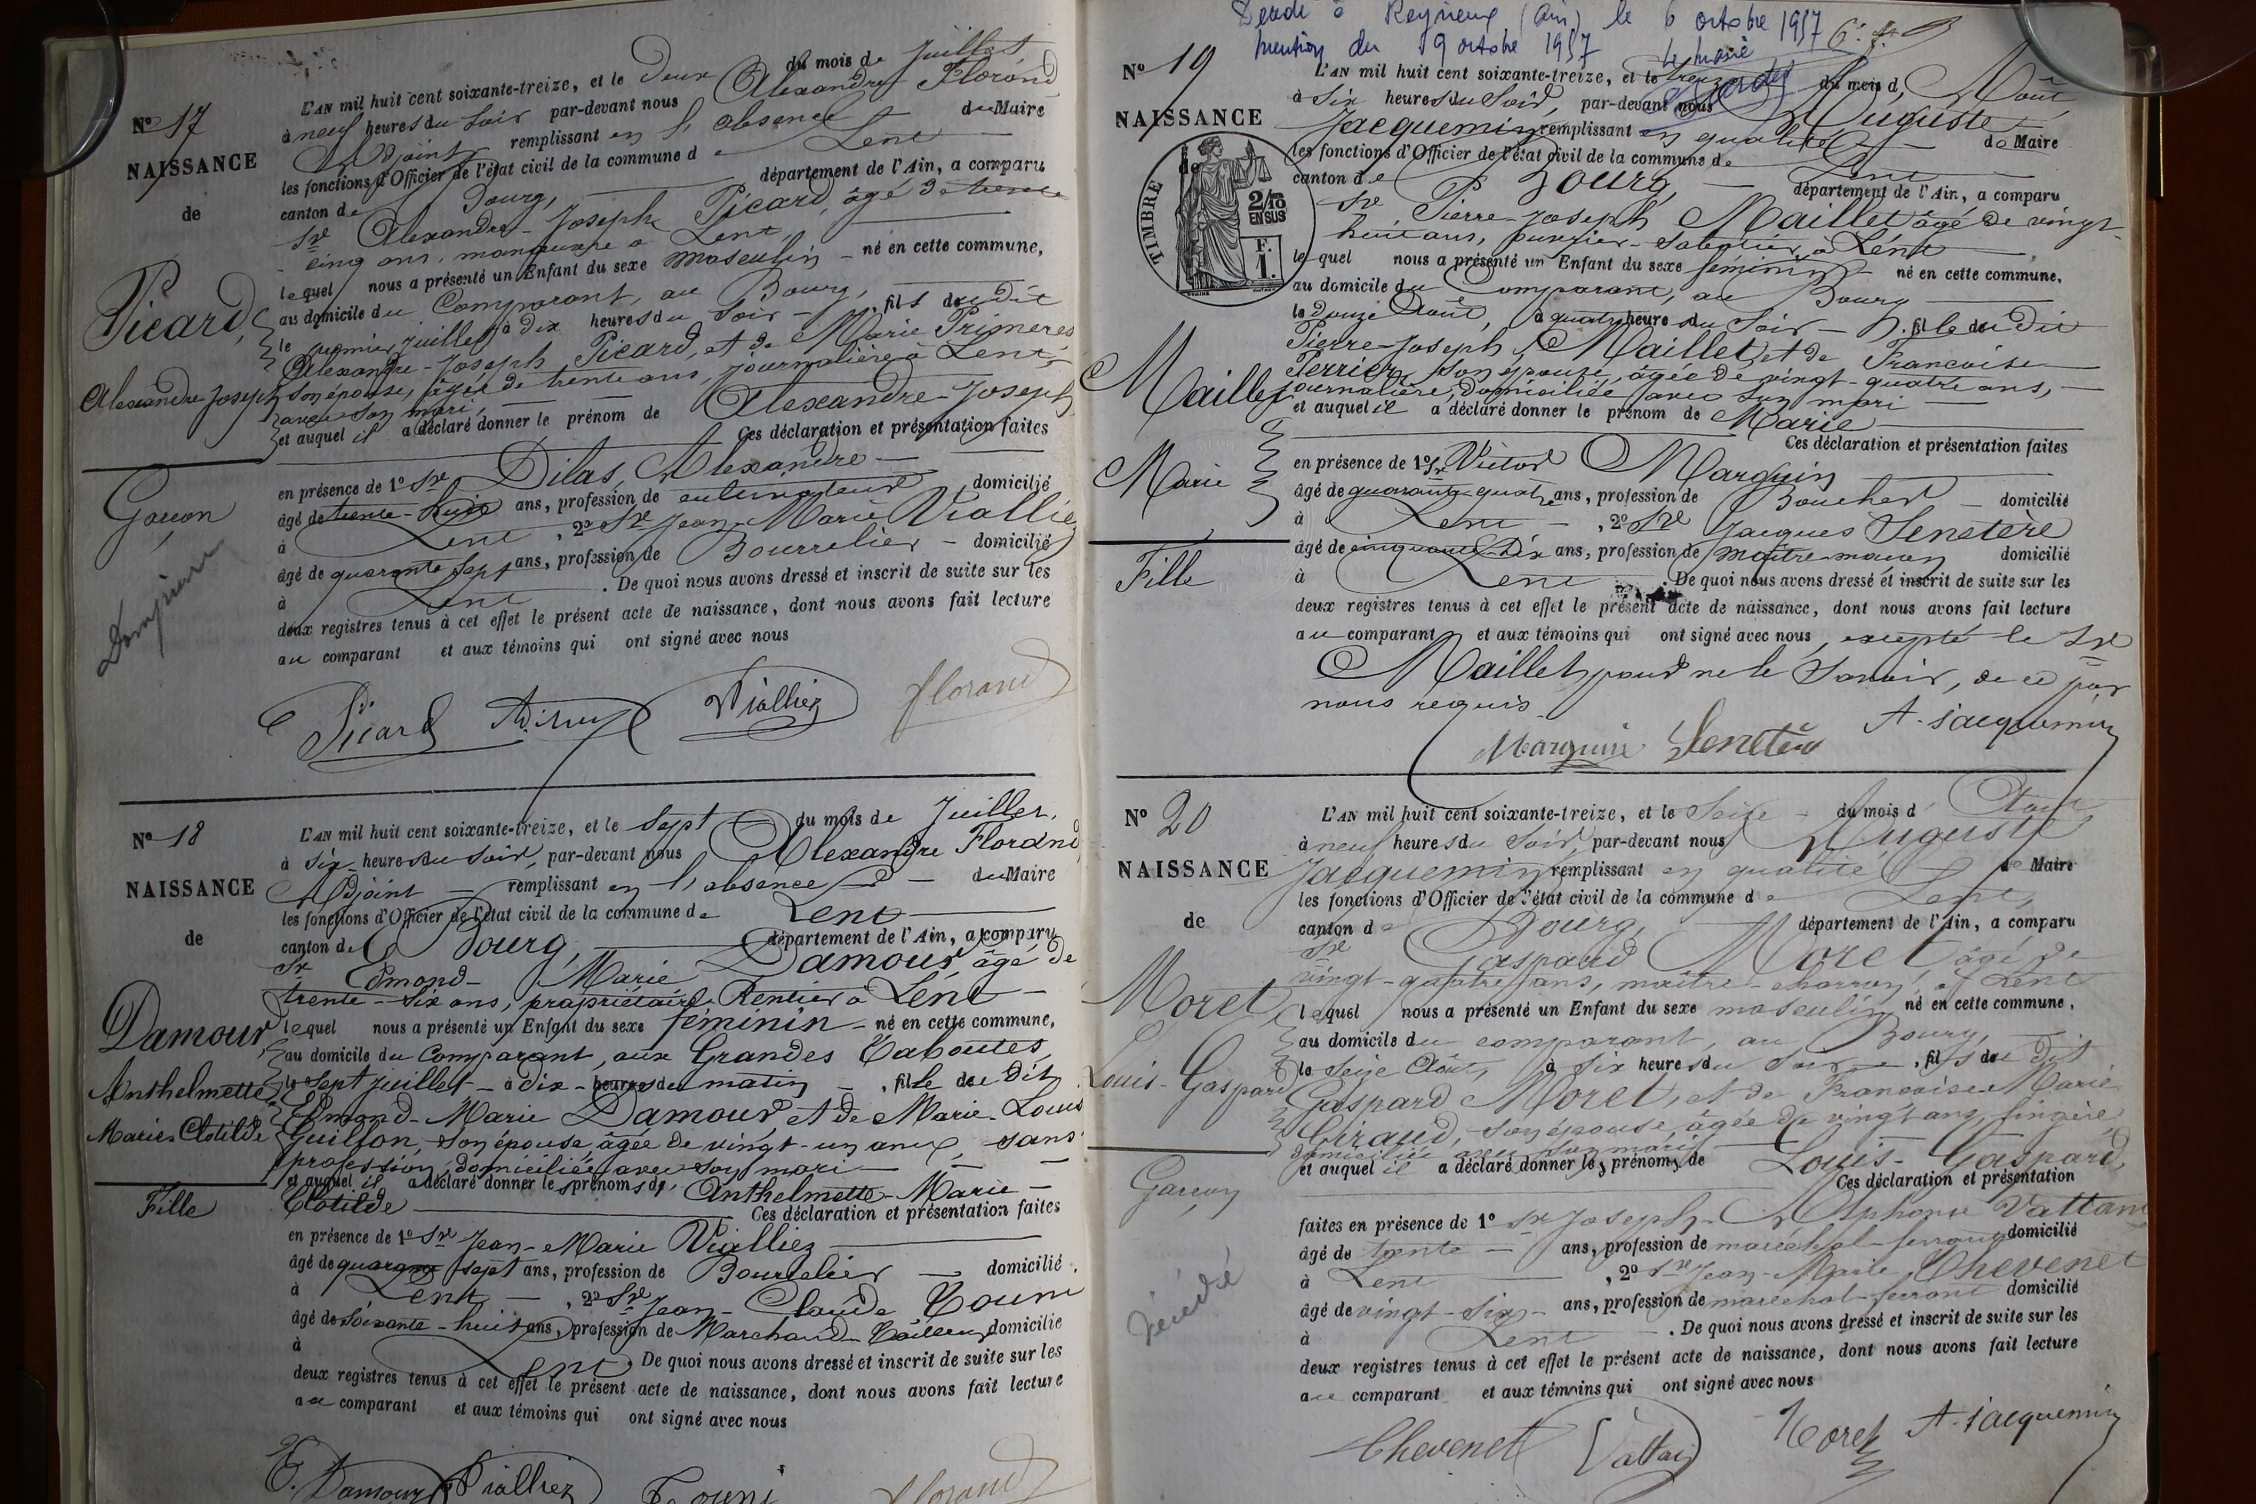 N° 17
NAISSANCE
de
Picard,
Alexandre Joseph
Garçon
L'AN mil huit cent soixante-treize, et le Deux du mois de Juillet
à neuf heures du Soir par-devant nous Alexandre Florand
Adjoint remplissant en l'absence du Maire
les fonctions d'Officier de l'état civil de la commune de Lent
canton de Bourg, département de l'Ain, a comparu
Sr Alexandre-Joseph Picard, âgé de trente
cinq ans, manœuvre à Lent,
lequel nous a présenté un Enfant du sexe masculin né en cette commune,
au domicile du Comparant, au Bourg,
le premier Juillet à dix heures du Soir, fils du dit
Alexandre-Joseph Picard, et de Marie
son épouse, âgée de trente ans, journalière à Lent
avec son mari,
et auquel il a déclaré donner le prénom de Alexandre-Joseph
Ces déclaration et présentation faites
en présence de 1° Sr Dilas, Alexandre
âgé de trente-huit ans, profession de cultivateur domicilié
à Lent, 2° Sr Jean-Marie Vialliez
âgé de quarante sept ans, profession de Bourrelier domicilié
à Lent. De quoi nous avons dressé et inscrit de suite sur les
deux registres tenus à cet effet le présent acte de naissance, dont nous avons fait lecture
au comparant et aux témoins qui ont signé avec nous
Picard Vialliez Florand
N° 18
NAISSANCE
de
Damour,
Anthelmette
Marie Clotilde
Fille
L'AN mil huit cent soixante-treize, et le Sept du mois de Juillet,
à six heures du Soir, par-devant nous Alexandre Florand
Adjoint remplissant en l'absence du Maire
les fonctions d'Officier de l'état civil de la commune de Lent
canton de Bourg, département de l'Ain, a comparu
Sr Edmond-Marie Damour âgé de
trente-six ans, propriétaire Rentier à Lent
lequel nous a présenté un Enfant du sexe féminin né en cette commune,
au domicile du Comparant, aux Grandes Caboutes,
le Sept Juillet à dix heures du matin, fille du dit
Edmond-Marie Damour, et de Marie-Louise
Guillon, son épouse, âgée de vingt-un ans, sans
profession, domiciliée avec son mari
et auquel il a déclaré donner les prénoms de Anthelmette-Marie
Clotilde Ces déclaration et présentation faites
en présence de 1° Sr Jean-Marie Vialliez
âgé de quarante sept ans, profession de Bourrelier domicilié
à Lent, 2° Sr Jean-Claude
âgé de soixante-huit ans, profession de Marchand-Tailleur domicilié
à Lent. De quoi nous avons dressé et inscrit de suite sur les
deux registres tenus à cet effet le présent acte de naissance, dont nous avons fait lecture
au comparant et aux témoins qui ont signé avec nous
E. Damour Vialliez Florand
Décédé à Reyrieux (Ain) le 6 octobre 1957
mention du 9 octobre 1957
le maire
N° 19
NAISSANCE
de
TIMBRE
2/10
EN SUS
F.
1.
Maillet
Marie
Fille
L'AN mil huit cent soixante-treize, et le treize du mois d'Août
à six heures du Soir, par-devant nous Auguste
Jacquemin remplissant en qualité de Maire
les fonctions d'Officier de l'état civil de la commune de Lent
canton de Bourg, département de l'Ain, a comparu
Sr Pierre-Joseph Maillet âgé de vingt-
huit ans, sabotier à Lent
lequel nous a présenté un Enfant du sexe féminin né en cette commune,
au domicile du Comparant, au Bourg
le douze Août, à quatre heures du Soir, fille du dit
Pierre-Joseph Maillet, et de Francoise
Perrier, son épouse, âgée de vingt-quatre ans,
journalière, domiciliée avec son mari
et auquel il a déclaré donner le prénom de Marie
Ces déclaration et présentation faites
en présence de 1° Sr Victor Marguin
âgé de quarante-quatre ans, profession de Boucher domicilié
à Lent, 2° Sr Jacques Senetère
âgé de cinquante-dix ans, profession de maître-maçon domicilié
à Lent. De quoi nous avons dressé et inscrit de suite sur les
deux registres tenus à cet effet le présent acte de naissance, dont nous avons fait lecture
au comparant et aux témoins qui ont signé avec nous, excepté le Sr
Maillet pour ne le Savoir, de ce par
nous requis.
Marguin Senetère A. Jacquemin
N° 20
NAISSANCE
de
Moret
Louis-Gaspard
Garçon
L'AN mil huit cent soixante-treize, et le Seize du mois d'Août
à neuf heures du Soir, par-devant nous Auguste
Jacquemin remplissant en qualité de Maire
les fonctions d'Officier de l'état civil de la commune de Lent,
canton de Bourg, département de l'Ain, a comparu
Sr Gaspard Moret âgé de
vingt-quatre ans, maître-charron, à Lent
lequel nous a présenté un Enfant du sexe masculin né en cette commune,
au domicile du comparant, au Bourg,
le Seize Août, à six heures du Soir, fils du dit
Gaspard Moret, et de Francoise Marie
Giraud, son épouse, âgée de vingt ans, lingère,
domiciliée avec son mari
et auquel il a déclaré donner les prénoms de Louis-Gaspard,
Ces déclaration et présentation
faites en présence de 1° Sr Joseph-Alphonse
âgé de trente ans, profession de maréchal-ferrant domicilié
à Lent, 2° Sr Jean-Marie Chevenet
âgé de vingt-six ans, profession de maréchal-ferrant domicilié
à Lent. De quoi nous avons dressé et inscrit de suite sur les
deux registres tenus à cet effet le présent acte de naissance, dont nous avons fait lecture
au comparant et aux témoins qui ont signé avec nous
Chevenet Moret A. Jacquemin